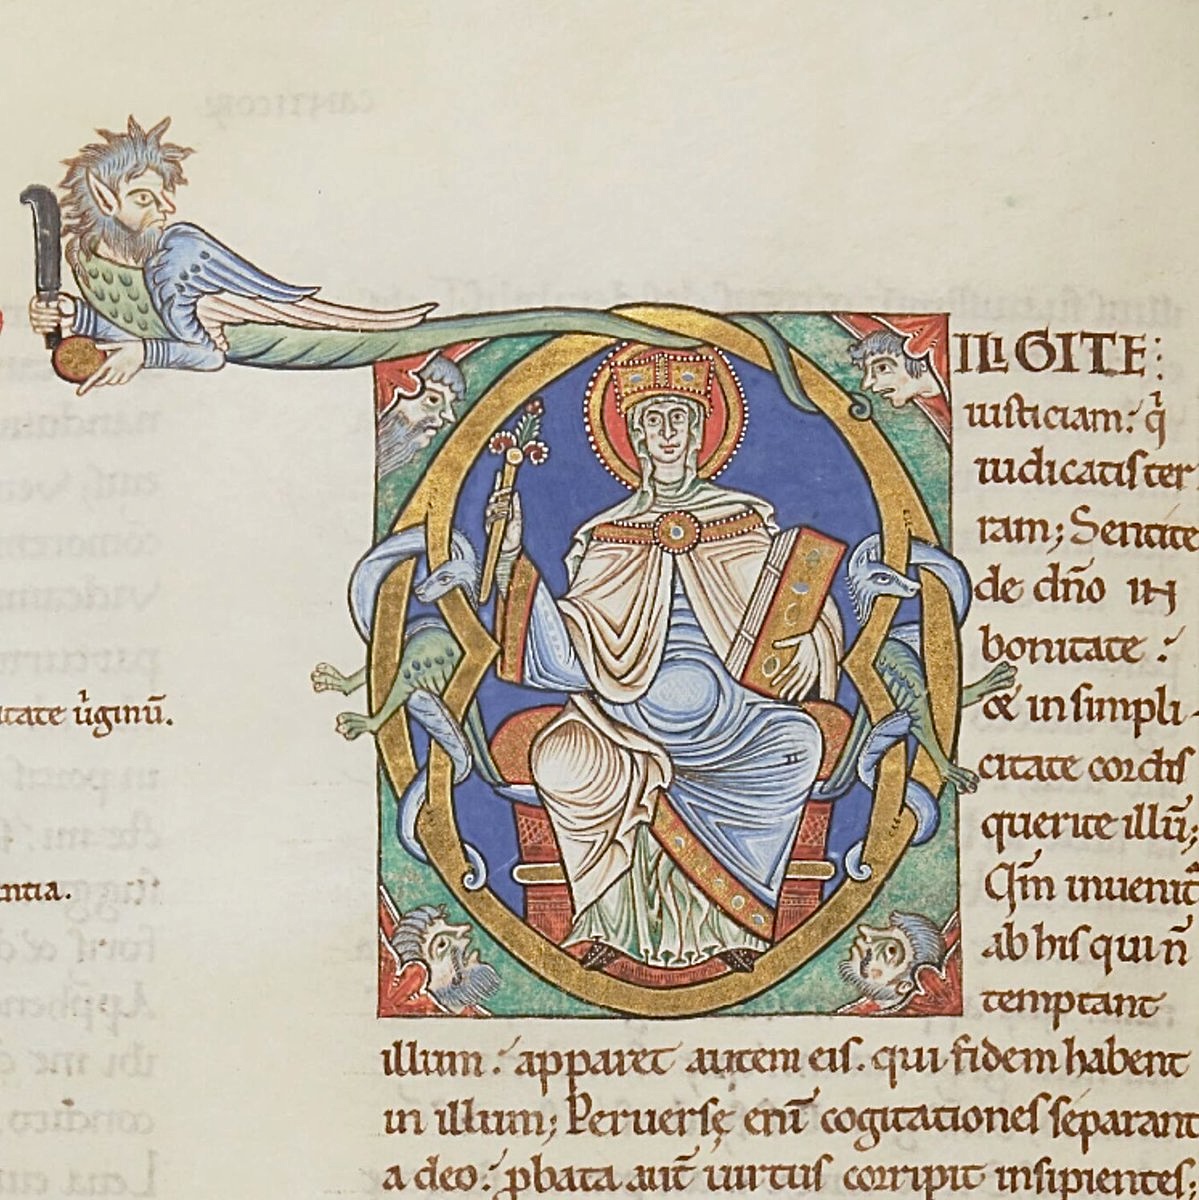 DILIGITE:
iusticiam: q̓
iudicatis ter
ram; Sentite
de dn̄o in
bonitate:
& in simpli-
citate cordis
querite illū;
Qm̄ inuenit̄
ab his qui n̄
temptant
itate u̓ginū.
ntia.
illum: apparet autem eis. qui fidem habent
in illum; Peruersę enī cogitationes separant
a deo: ꝓbata aut̄ uirtus corripit insipientes.